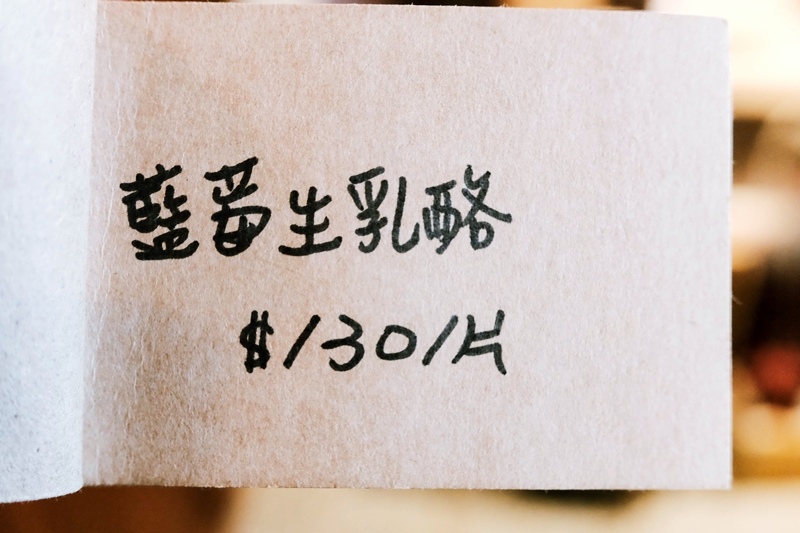 藍莓生乳酪
$130/片